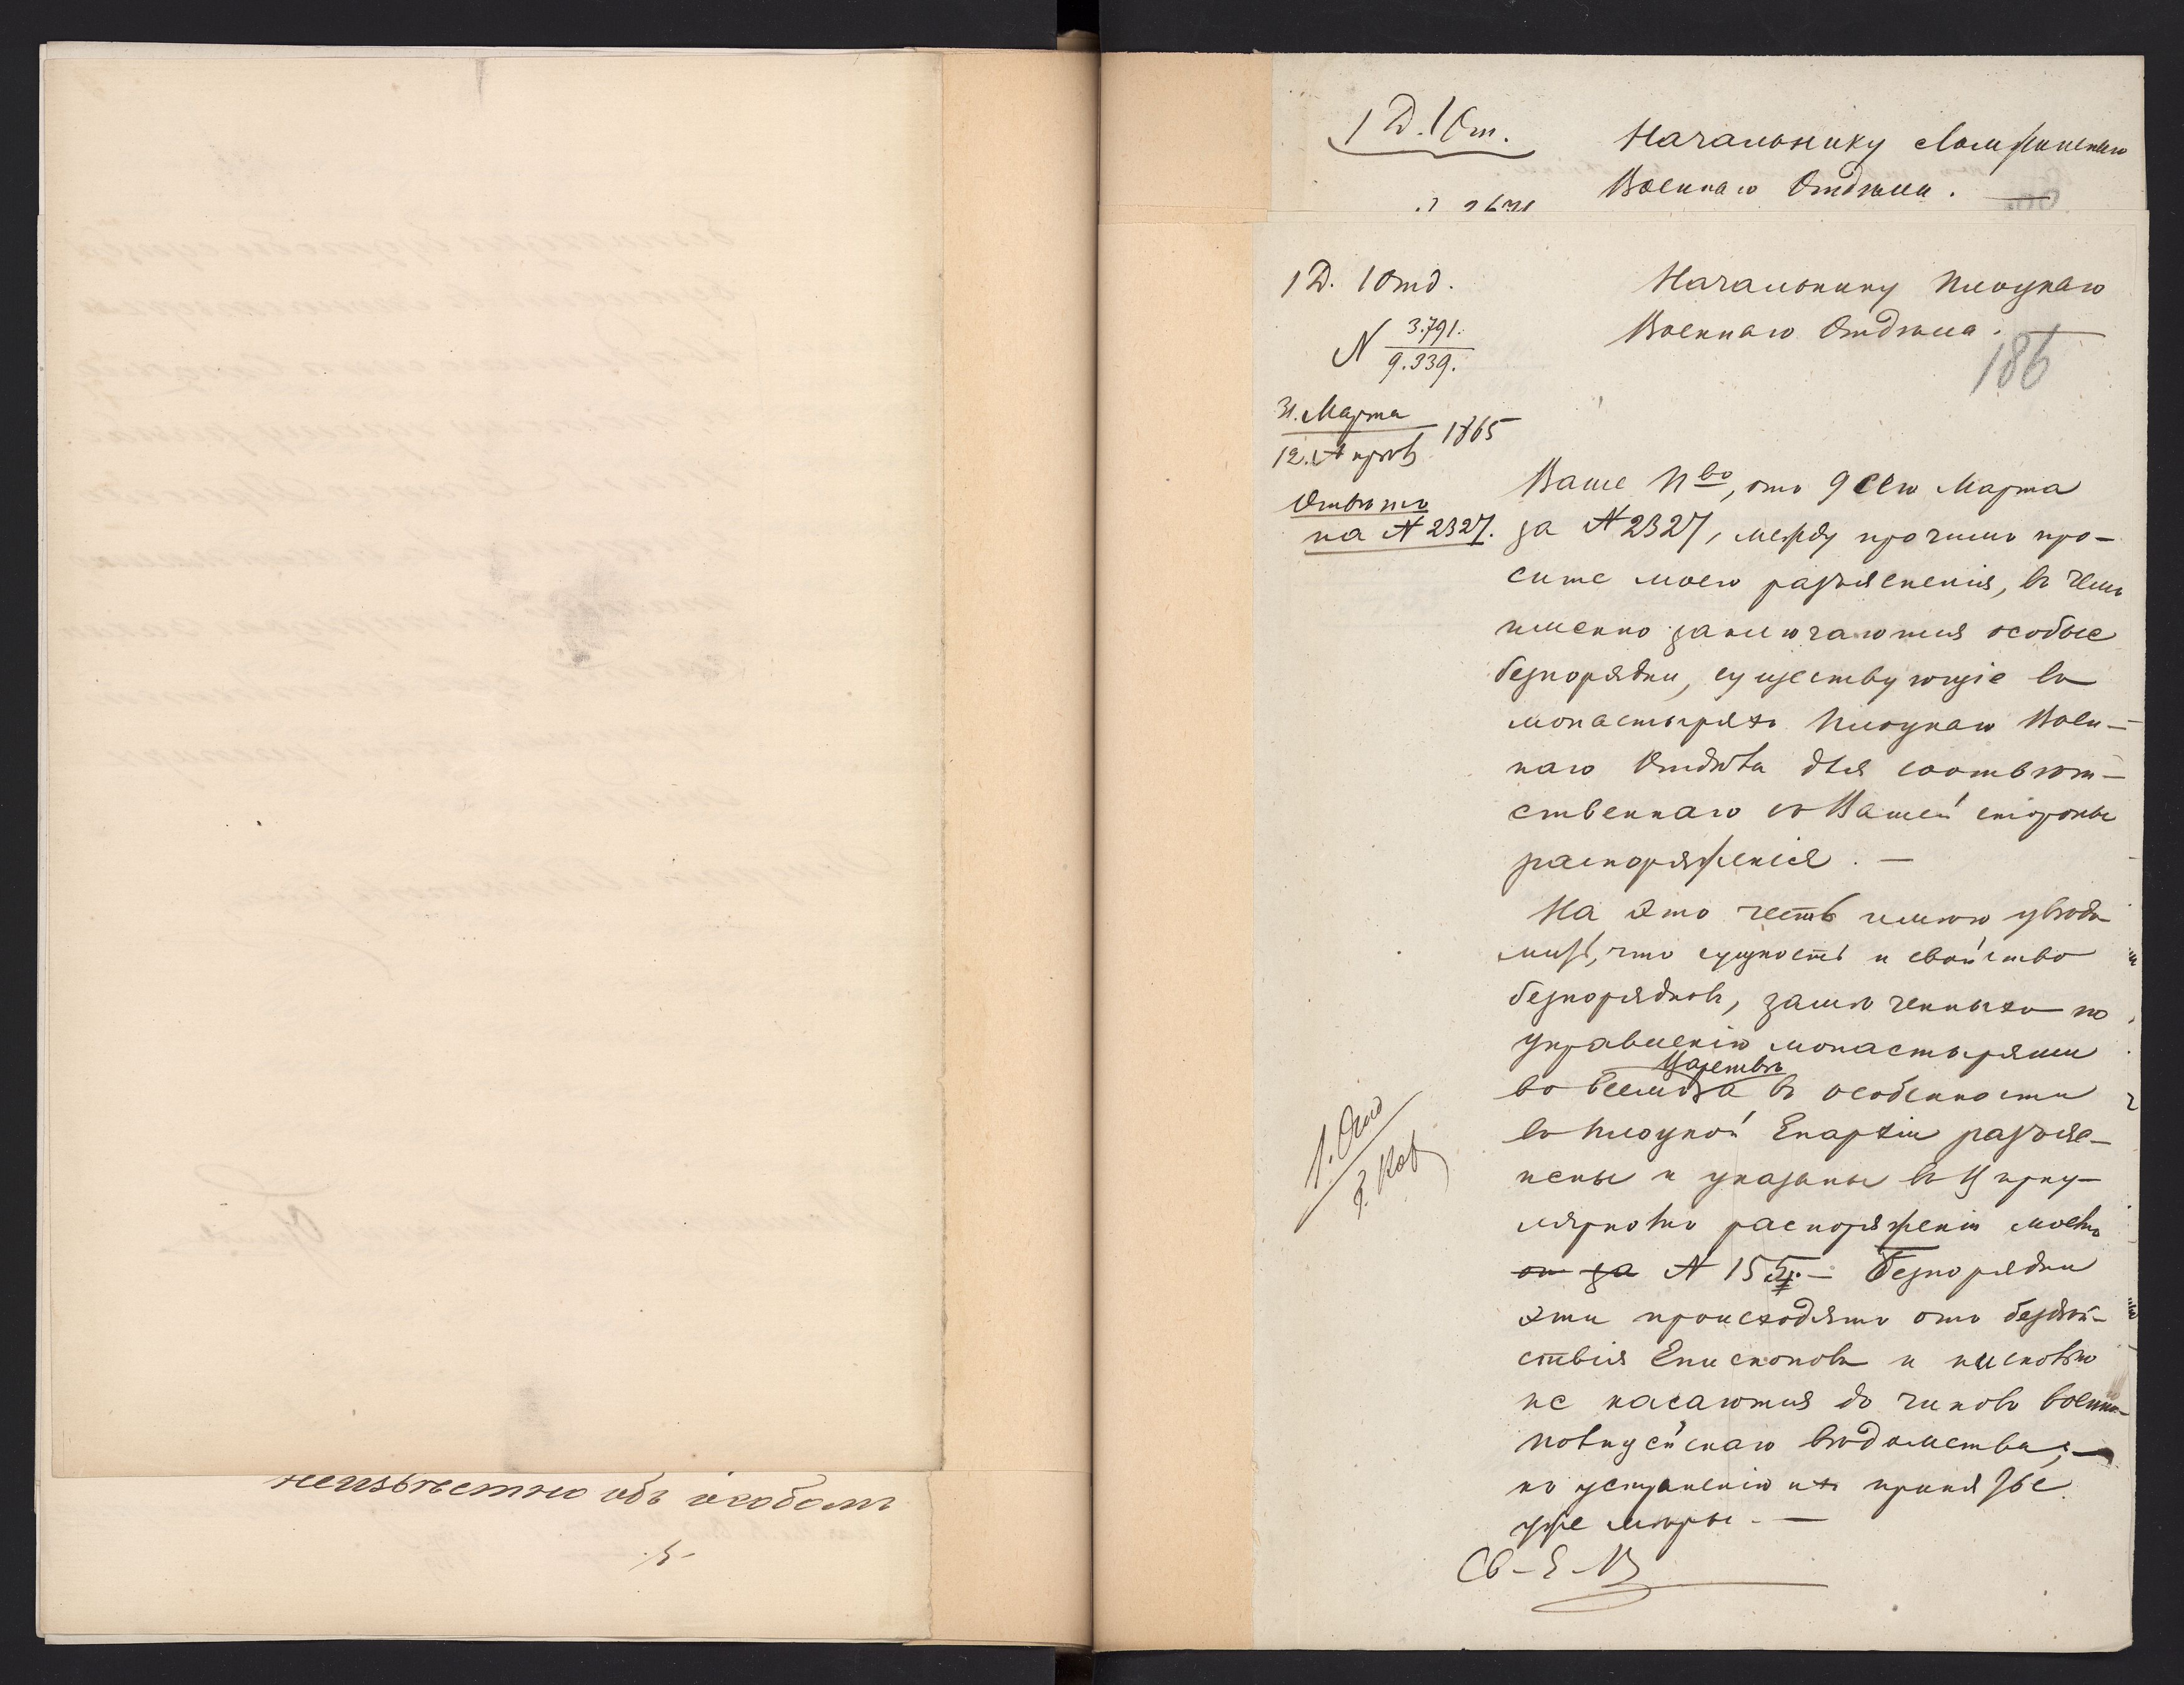 неизвѣстно объ особомъ
1 Д. 1 От.
Начальнику Ломжинскаго
Военнаго Отдѣла. —
1 Д. 1 Отд.
N 3.791.
9.339.
31. Марта
12. Апрѣл 1865
Отвѣтъ
на N 2327.
Начальнику Плоцкаго
Военнаго Отдѣла. —
186
Ваше П-во, отъ 9 сего Марта
за N 2327, между прочимъ про-
сите моего разъясненія, въ чемъ
именно заключаются особые
безпорядки, существующіе въ
монастыряхъ Плоцкаго Воен-
наго Отдѣла для соотвѣт-
ственнаго съ Вашей стороны
распоряженія. —
На это честь имѣю увѣдо
мить, что сущность и свойство
безпорядковъ, замѣченныхъ по
управленію монастырями
Царствѣ
во всемъ а въ особенности
въ Плоцкой Епархіи разъяс-
нены и указаны въ Цирку-
лярномъ распоряженіи моемъ
за N 155. — Безпорядки
эти происходятъ отъ бездѣй-
ствія Епископовъ и нисколько
не касаются до чиновъ военно-
полицейскаго вѣдомства; —
къ устраненію ихъ приняты
уже мѣры. —
Св - Е - В
1. Отд